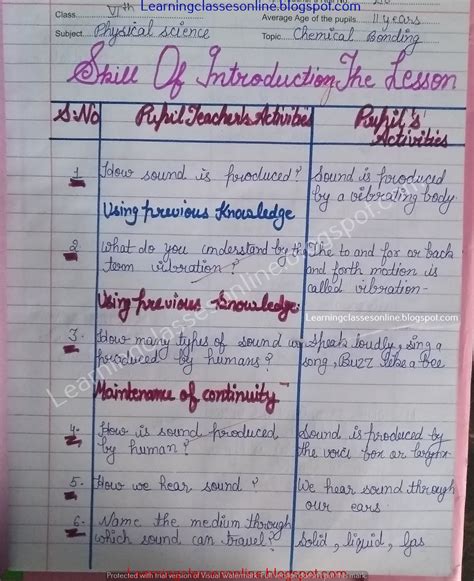 Learningclassesonline.blogspot.com
Class VIth
Average Age of the pupils 11 years
Subject Physical science
Topic Chemical Bonding
Skill Of Introduction The Lesson
S.No
Pupil Teacher's Activities
Pupil's Activities
1
How sound is produced?
Sound is produced
by a vibrating body
Using previous Knowledge
2
What do you understand by the
term vibration?
The to and for or back
and forth motion is
called vibration-
Learningclassesonline.blogspot.com
Using previous knowledge:
3.
How many types of sound
produced by humans?
speak loudly, sing a
song, Buzz like a bee
Maintenane of continuity
4.
How is sound produced
by human?
Sound is produced by
the voice box or larynx.
5.
How we hear sound?
We hear sound through
our ears.
6.
Name the medium through
which sound can travel?
Solid, liquid, gas
Learningclassesonline.blogspot.com
Protected with trial version of Visual Watermark